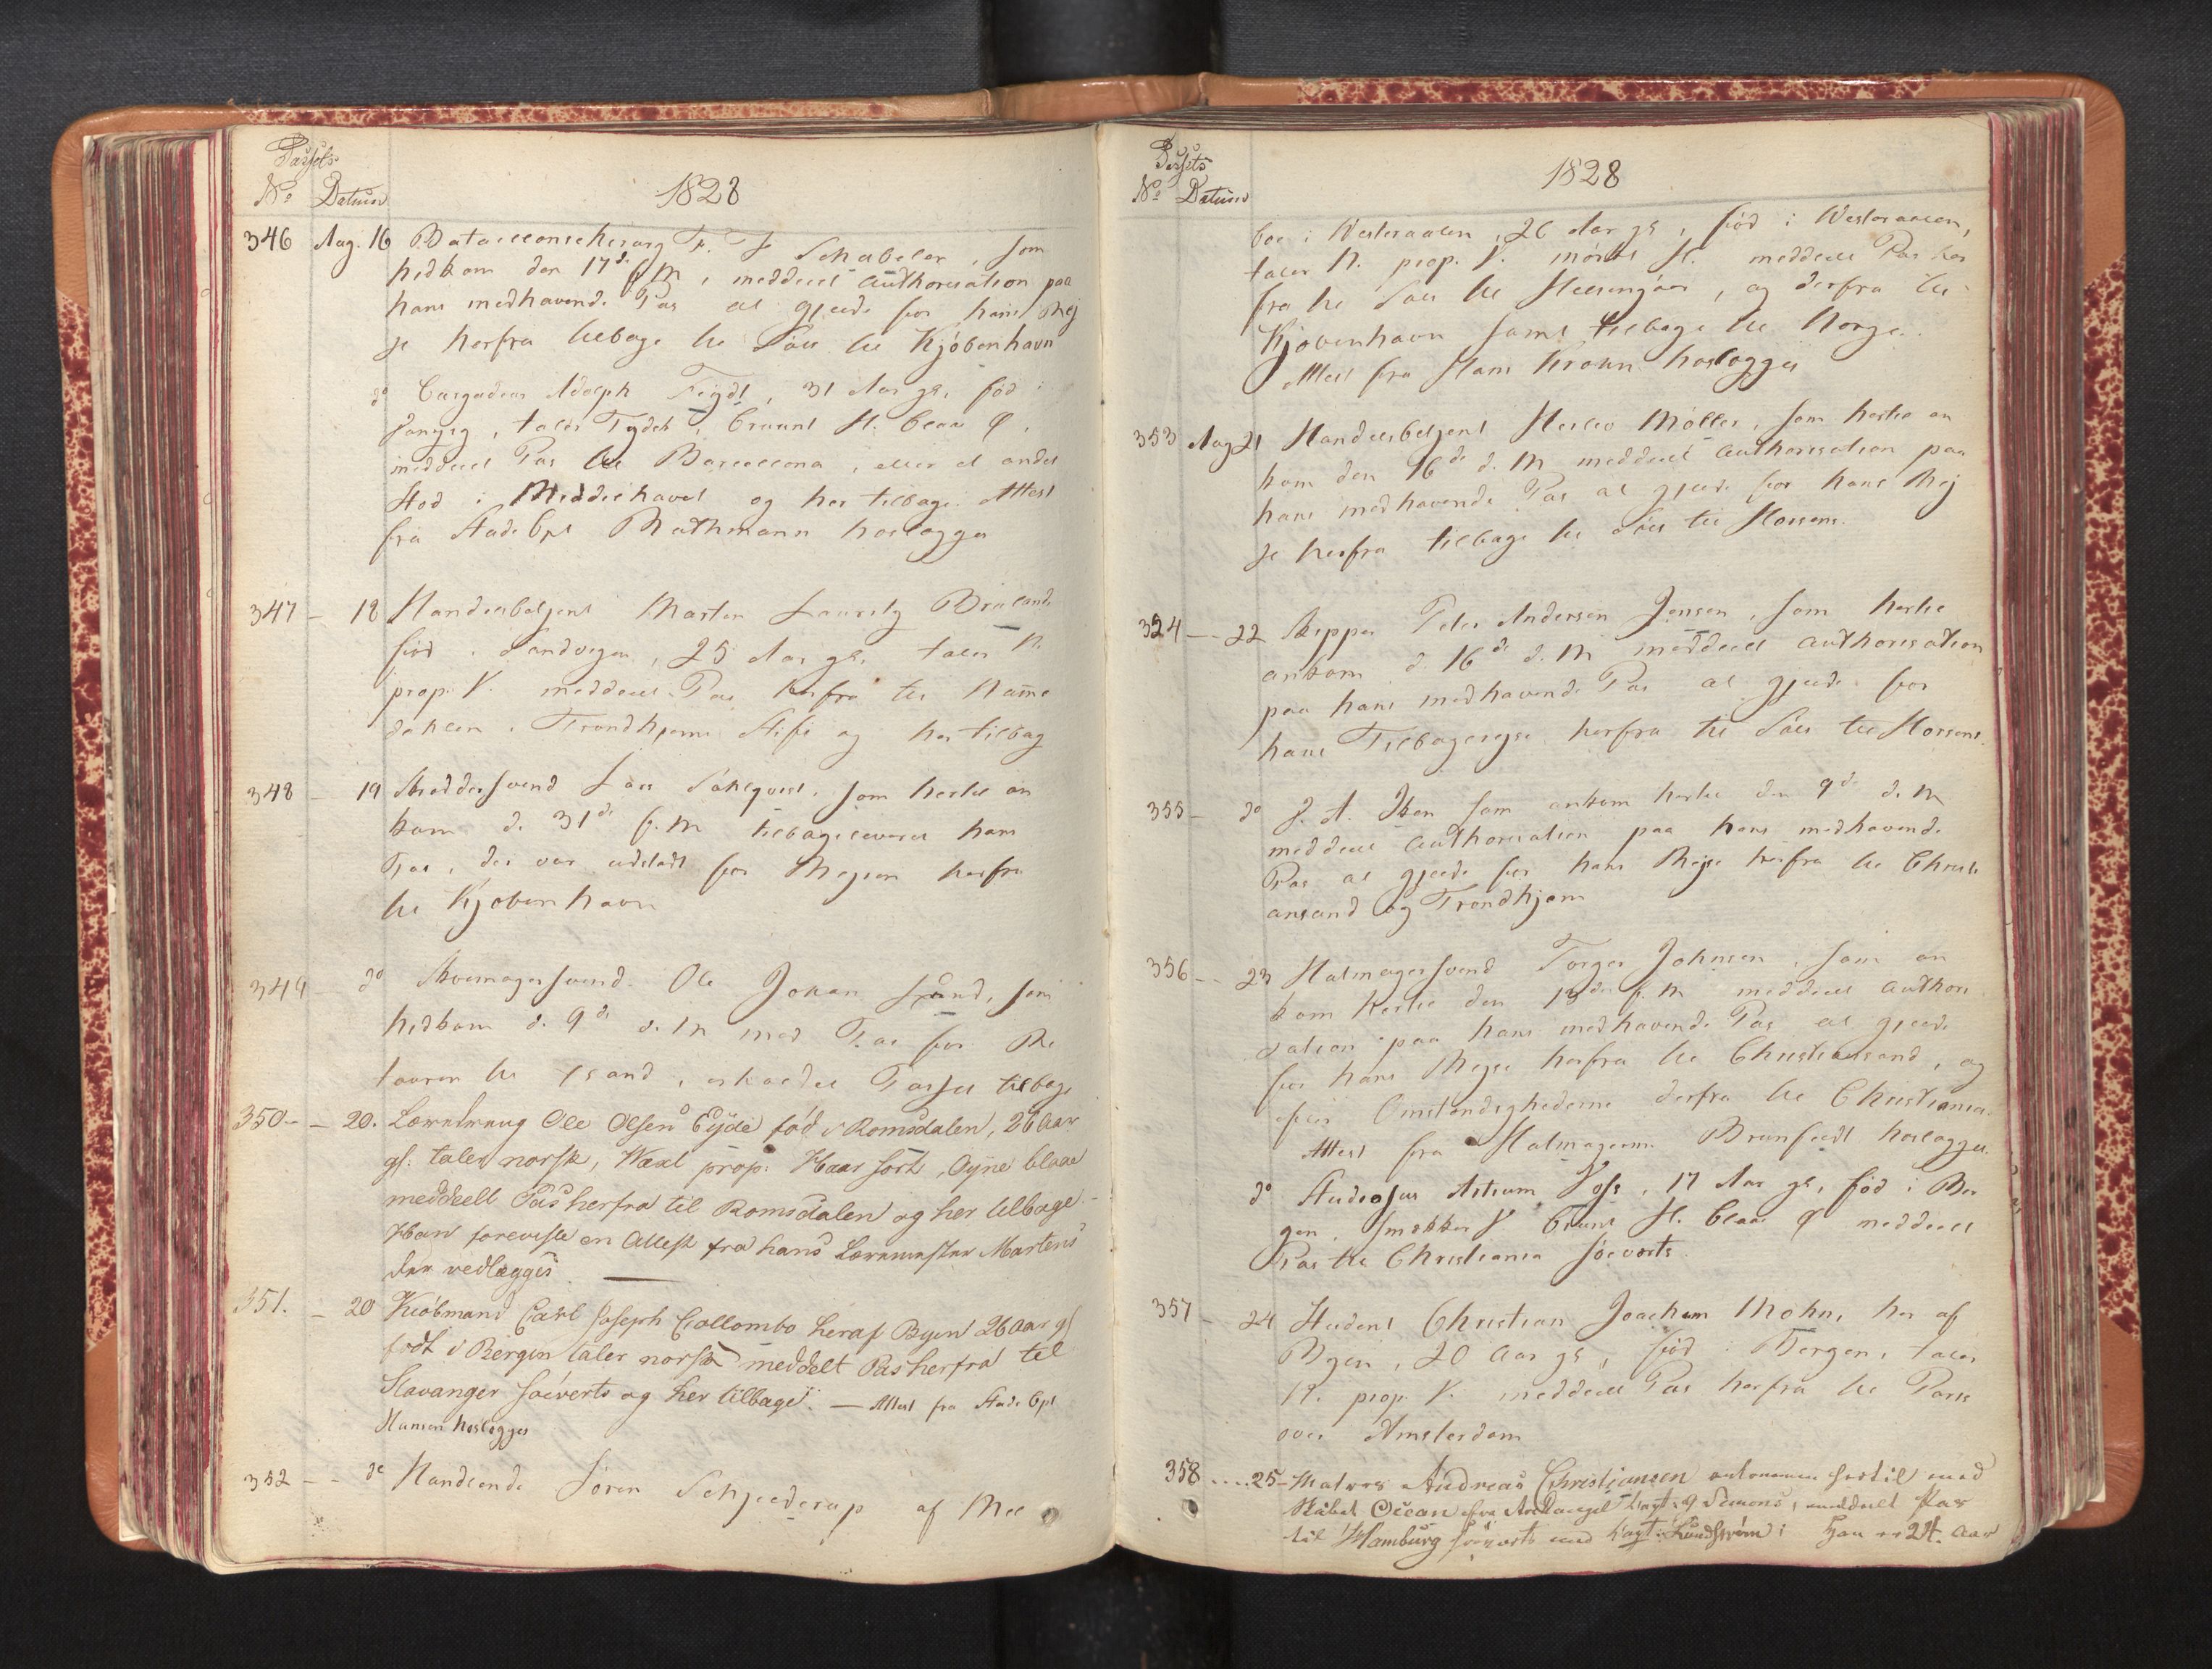 Passets
No Datum 1828
346 Aug. 16 Bataillonschirurg F. F. Schabeler, som
hidkom den 17de f M, meddeelt Authorisation paa
hans medhavende Pas at gjelde for hans Rej
se herfra tilbage til Søes til Kjøbenhavn
do Cargadeur Adolph Feydt, 31 Aar gl. fød i
Danzig, taler Tydsk, bruunt H. blaa Ø.
meddeelt Pas til Barcellona, eller et andet
Sted i Middelhavet og her tilbage. Attest
fra Stads Cpt Rathmann hoslægges
347 – 18 Handelsbetjent Morten Lauritz Braland
fød i Sandvigen, 25 Aar gl. taler N.
prop. V. meddeelt Pas herfra til Namme
dahlen i Trondhjems Stift og her tilbag
348 – 19 Skreddersvend Lars Dahlqvist, som hertil an
kom d. 31de f. M tilbageleveret hans
Pas, der var udstædt for Reysen herfra
til Kjøbenhavn
349 – do Skomagersvend Ole Johan Lund, som
hidkom d. 9de d. M med Pas for Re
touren til sand, erholdt Passet tilbage
350 – – 20. Læredreng Ole Olsen Eyde fød i Romsdalen, 26 Aar
gl: taler norsk, Wæxt prop: Haar sort, Øyne blaae
meddeelt Pas herfra til Romsdalen og her tilbage –
Han foreviste en Attest fra hans Læremester Martens
der vedlægges
351. – 20 Kiøbmand Carl Joseph Collombo heraf Byen 26 Aar gl
født i Bergen taler norsk meddelt Pas herfra til
Stavanger søeverts og her tilbage. – Attest fra Stads Cpt
Hansen hoslægges
352 – – do Handlende Søren Schjelderup af Mel
Passets
No Datum 1828
boe i Westeraalen, 26 Aar gl, fød i Westeraalen,
taler N. prop. V. mørkt H. meddeelt Pas her
fra til Søes til Helsingöer, og derfra til
Kjøbenhavn samt tilbage til Norge.
Attest fra Hans Krohn hoslægges
353 Aug 21 Handelsbetjent Herlev Møller, som hertil an
kom den 16de d. M meddeelt Authorisation paa
hans medhavende Pas at gjelde for hans Rej
se herfra tilbage til Søes til Horsens.
324 – – 22 Skipper Peter Andersen Jensen, som hertil
ankom d. 16de d. M meddeelt Authorisation
paa hans medhavende Pas at gjelde for
hans Tilbagerejse herfra til Søes til Horsens.
355 – do J. A. Iken som ankom hertil den 9de d. M
meddeelt Authorisation paa hans medhavende
Pas at gjelde for hans Rejse herfra til Christi
ansand og Trondhjem
356 – – 23 Hatmagersvend Torger Johnsen, som an
kom hertil den 13de f. M meddeelt Authori
sation paa hans medhavende Pas at gjelde
for hans Rejse herfra til Christiansand, og
efter Omstændighederne derfra til Christiania.
Attest fra Hatmagerm. Brunfeldt hoslægges.
do Studiosus Artium Foss, 17 Aar gl, fød i Ber
gen, smekker V bruunt H. blaae Ø meddeelt
Pas til Christiania søeverts.
357 – 24 Student Christian Joachim Mohn, her af
Byen, 20 Aar gl, fød i Bergen, taler
N. prop. V. meddeelt Pas herfra til Paris
over Amsterdam
358 .... 25 – Matros Andreas Christiansen ankommen hertil med
Skibet Ocean fra Archangel Capt: Simons, meddeelt Pas
til Hamburg søeverts med Capt: Lundstrøm: Han er 24. Aar